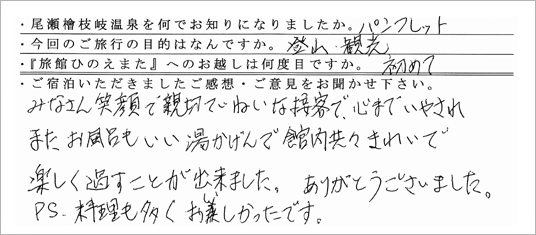 ・尾瀬檜枝岐温泉を何でお知りになりましたか。パンフレット
・今回のご旅行の目的はなんですか。登山・観光
・『旅館ひのえまた』へのお越しは何度目ですか。初めて
・ご宿泊いただきましたご感想・ご意見をお聞かせ下さい。
みなさん笑顔で親切ていねいな接客で、心までいやされ
またお風呂もいい湯かげんで館内共々きれいで
楽しく過すことが出来ました。ありがとうございました。
PS. 料理も多くお美しかったです。